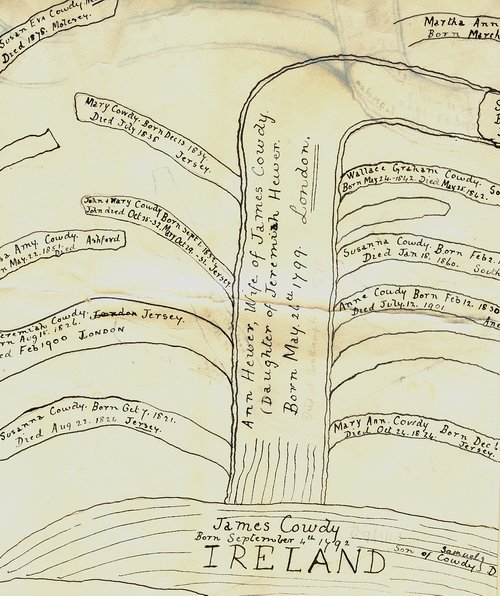 Susan Eva Cowdy
Died 1876. Molesey.
Martha Ann
Born March
Mary Cowdy. Born Dec 13 1834.
Died July 1835 Jersey.
John & Mary Cowdy Born Sept 1, 1832
John died Oct 25-32, Mary Oct 29-32. Jersey
Amy. Cowdy. Ashford
May. 22. 1851. Died
Jeremiah Cowdy. London Jersey.
Born Aug 15. 1826.
Feb 1900 LONDON
Susanna Cowdy. Born Oct 7. 1821.
Died Aug 22. 1822 Jersey.
Ann Hewer, Wife of James Cowdy.
(Daughter of Jeremiah Hewer.
Born May. 26th 1799. London.
Wallace Graham Cowdy. So
Born May 24. 1842. Died May 25. 1842.
Susanna Cowdy. Born Feb 2.
Died Jan 18. 1860. Sout
Anne Cowdy Born Feb 12. 1830
Died July. 12. 1901
Mary Ann. Cowdy Born Dec
Died Oct 24. 1824. Jersey.
James Cowdy
Born September 4th 1792
Son of Samuel
Cowdy. D
IRELAND